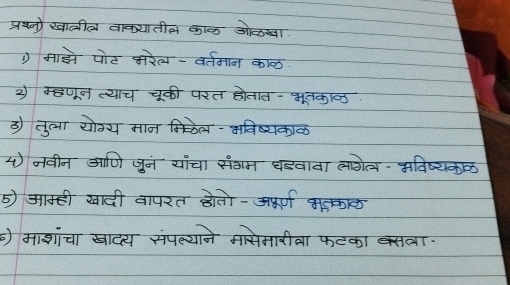 प्रश्न) खालील वाक्यातील काळ ओळखा.
1) माझे पोट भरेल - वर्तमान काळ.
2) म्हणून त्याच चूकी परत होतात - भूतकाळ.
3) तुला योग्य मान मिळेल - भविष्यकाळ
4) नवीन आणि जुनं यांचा संगम घडवावा लागेल - भविष्यकाळ
5) आम्ही खादी वापरत होतो - अपूर्ण भूतकाळ
6) माशांचा खाद्य संपल्याने मासेमारीला फटका बसला.